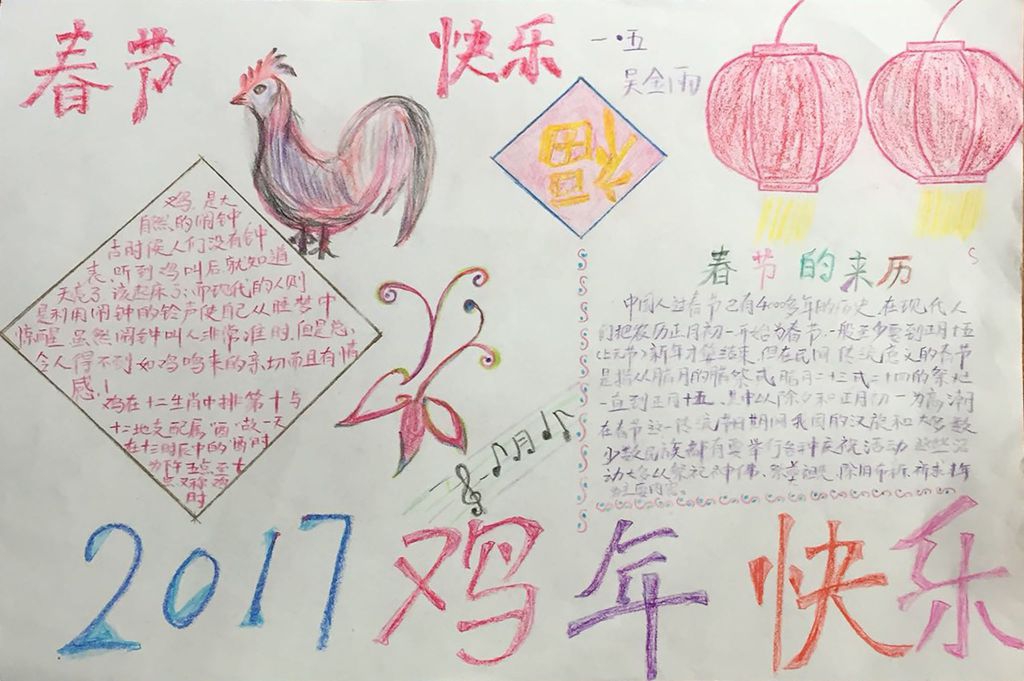 春节
快乐
一·五
吴金雨
福
鸡,是大
自然的闹钟
古时候人们没有钟
表,听到鸡叫后就知道
天亮了,该起床了;而现代的人则
是利用闹钟的铃声使自己从睡梦中
惊醒。虽然闹钟叫人非常准时,但是总
令人得不到如鸡鸣来的亲切而且有情
感!
鸡在十二生肖中排第十与
十二地支配属“酉”故一天
在十二时辰中的“酉”时
为下午五点至七
点又称
时
春节的来历
中国人过春节已有4000多年的历史,在现代人
们把农历正月初一开始为春节,一般至少要到正月十五
(上元节)新年才算结束,但在民间传统意义的春节
是指从腊月的腊祭或腊月二十三或二十四的祭灶
一直到正月十五,其中以除夕和正月初一为高潮
在春节这一传统节日期间我国的汉族和大多数
少数民族都有要举行各种庆祝活动,这些活
动大多以祭祀神佛、祭奠祖先、除旧布新、祈求丰年
为主要内容。
2017鸡年快乐